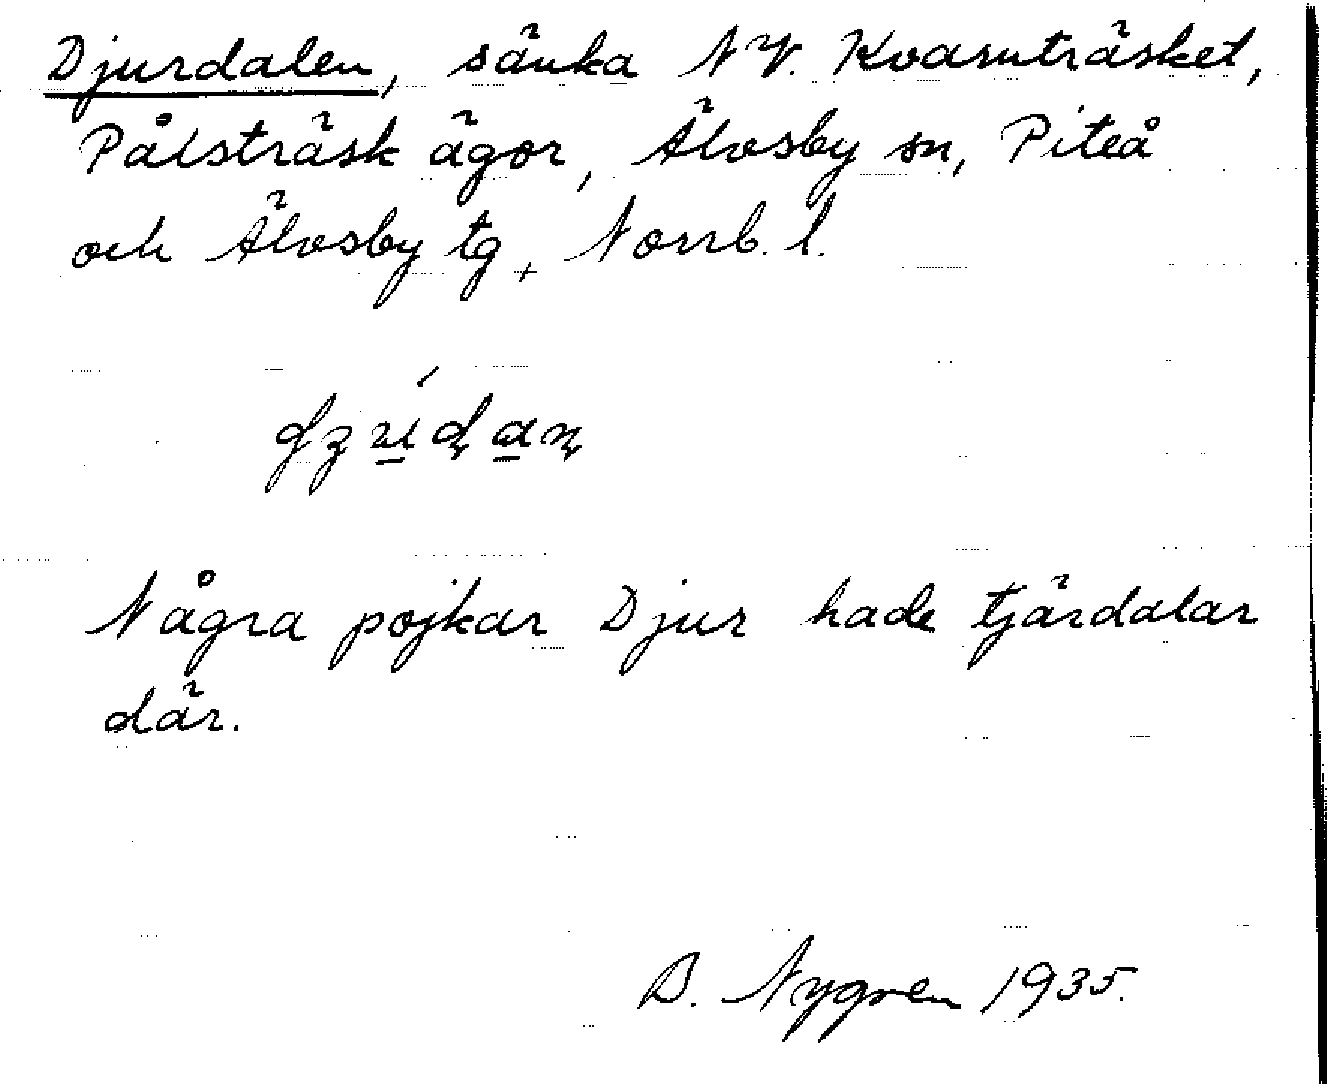 Djurdalen, sänka NV. Kvarnträsket,
Pålsträsk ägor, Älvsby sn, Piteå
och Älvsby tg, Norrb. l.
Några pojkar Djur hade tjärdalar
där.
B. Nygren 1935.